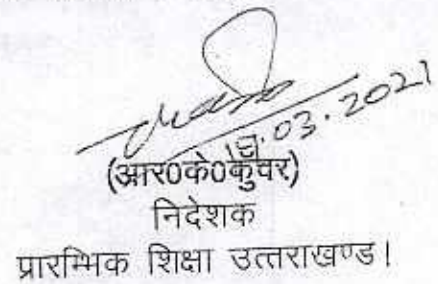 .03.2021
(आर0के0कुँवर)
निदेशक
प्रारम्भिक शिक्षा उत्तराखण्ड।